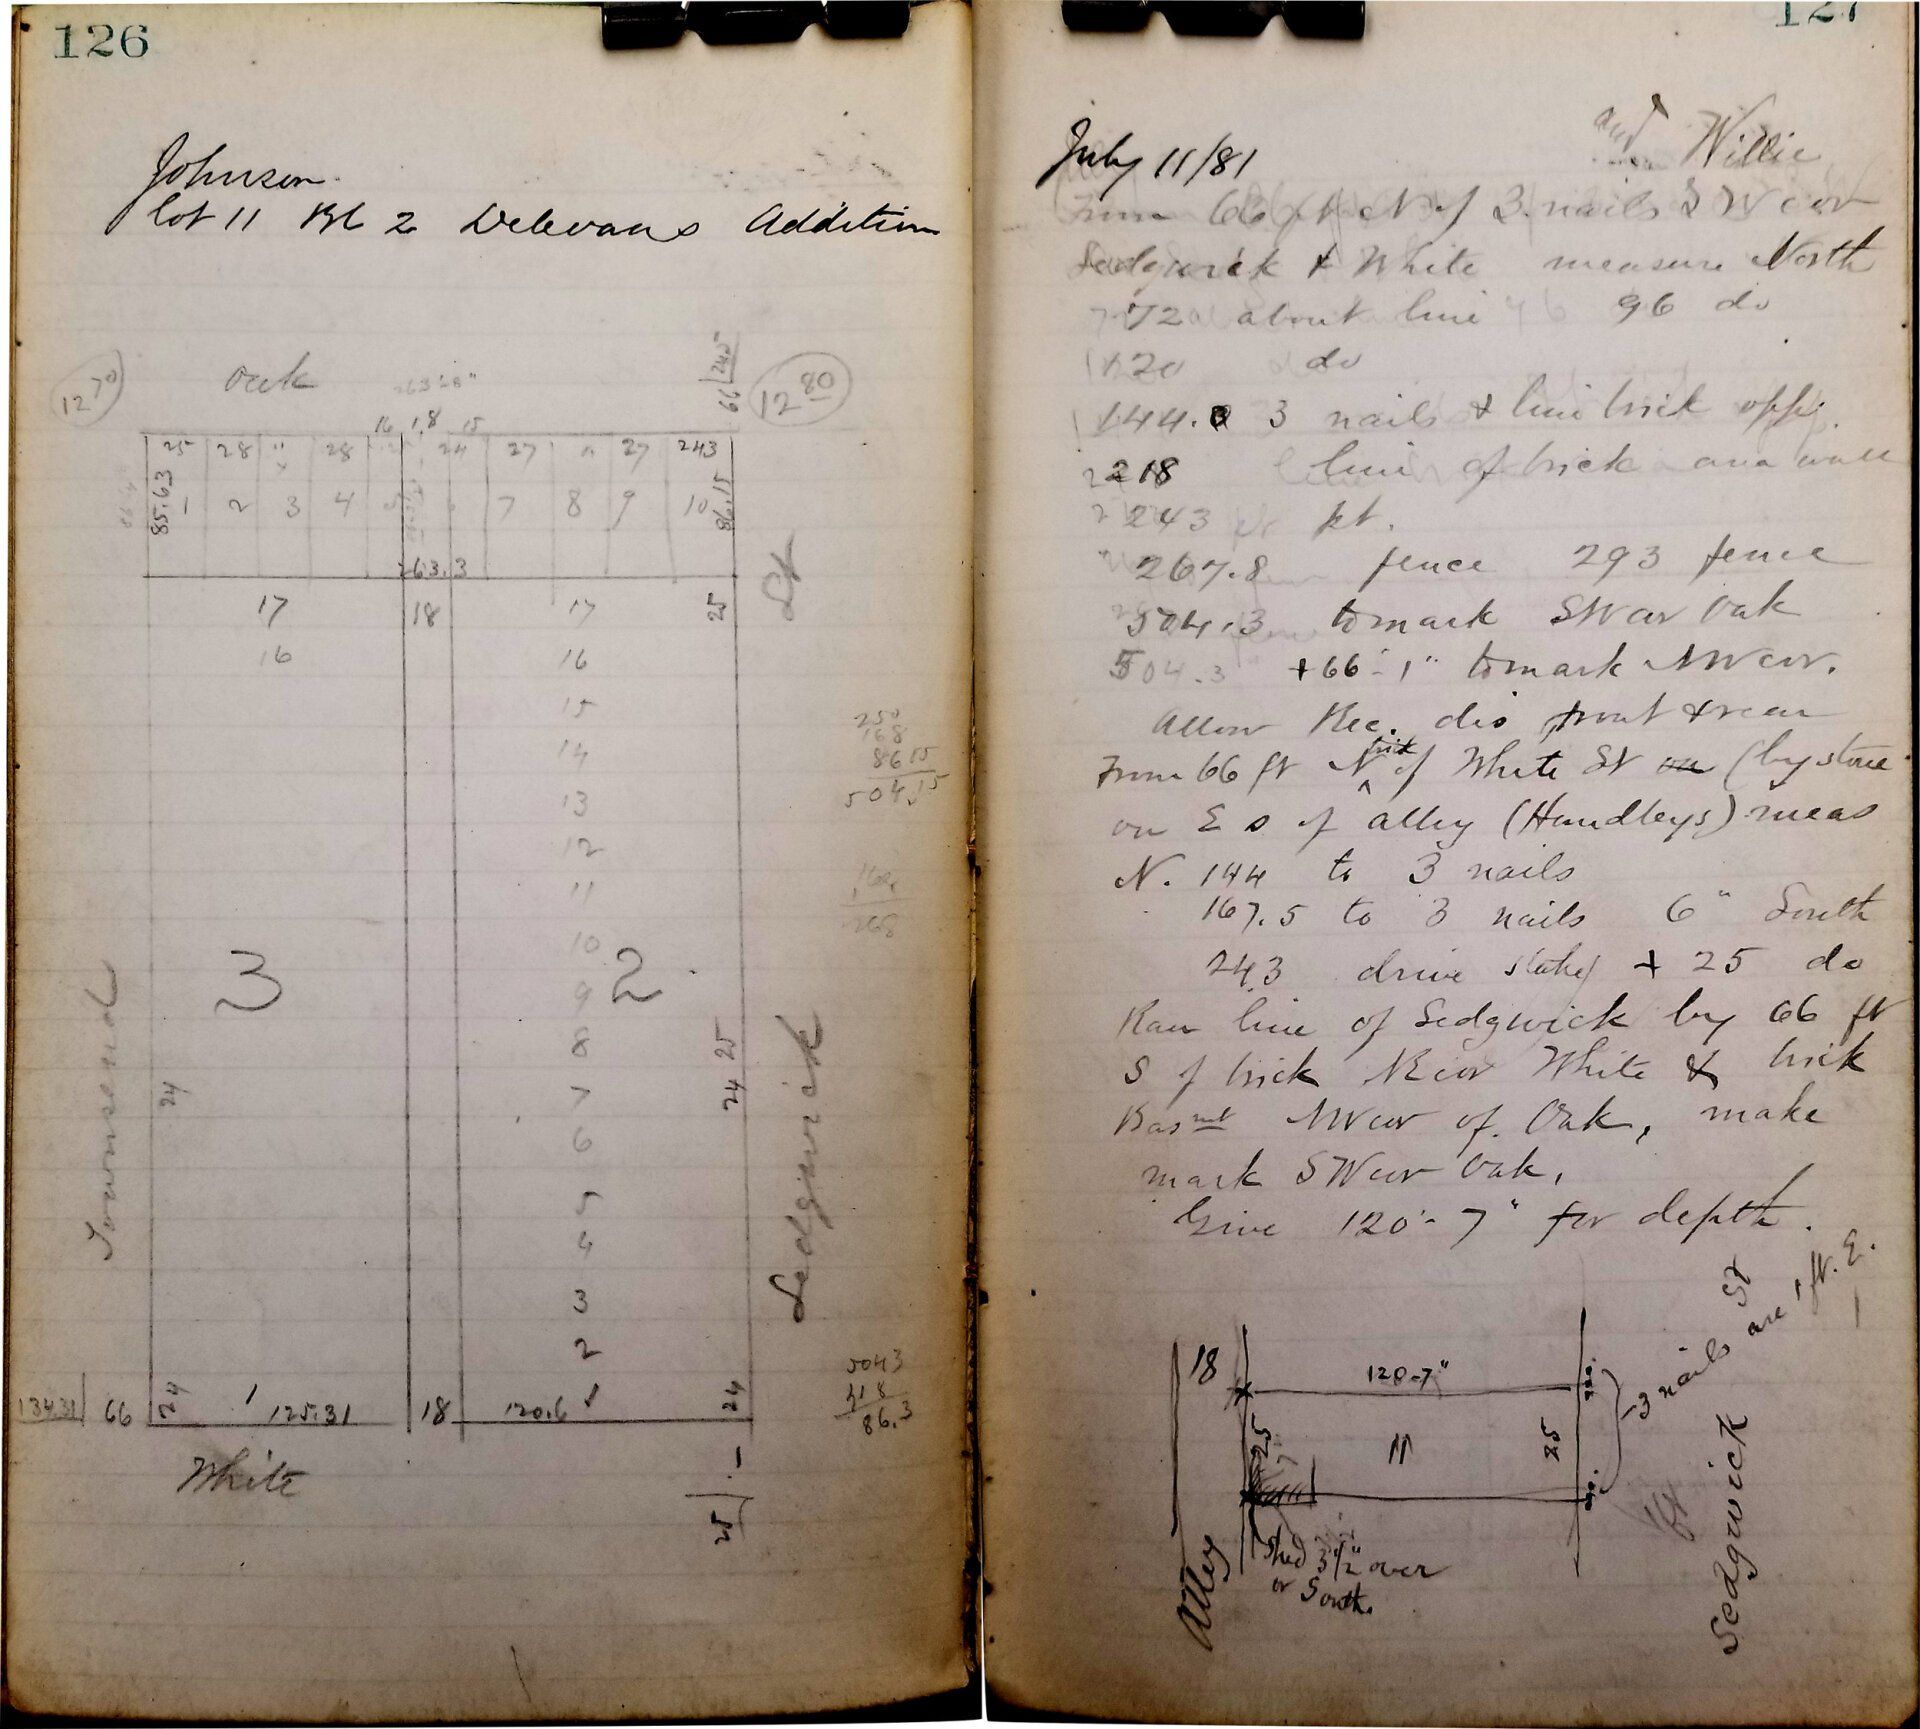 126
Johnson
Lot 11 Bl 2 Delevans Addition
Oak
12 70
66 24.5
12 80
16 1.8 15
25 28 " 28 24 27 " 27 243
85.63 1 2 3 4 7 8 9 10 86.15
263.3
St
17 18 17 25
16 16
15
14
13
12
11
10
3 2
9
8
7
6
5
4
3
2
25
24 24
Townsend
Sedgwick
250
168
86 15
504.15
168
268
5043
418
86.3
134.31 66 24 1 125.31 18 120.6 1 24
White
25
127
July 11/81
and Willie
From 66 ft N of 3 nails S W cor
Sedgwick & White measure North
72 about line 96 do
120 do
144.0 3 nails & line brick opp.
218 line of brick area wall
243 pt.
267.8 fence 293 fence
504.3 to mark SW cor Oak
504.3 + 66'-1" to mark NW cor.
Allow Rec. dis front & rear
From 66 ft N of brick White St (by stone
on E s of alley (Handleys) meas
N. 144 to 3 nails
167.5 to 3 nails 6" South
243 drive stake & 25 do
Ran line of Sedgwick by 66 ft
S of brick NE cor White & brick
Basmt NW cor of Oak, make
mark SW cor Oak.
Give 120'-7" for depth.
18 120-7"
25 11 25
3 nails are 1 ft. E.
St
Alley
Shed 3 1/2" over
or South.
Sedgwick